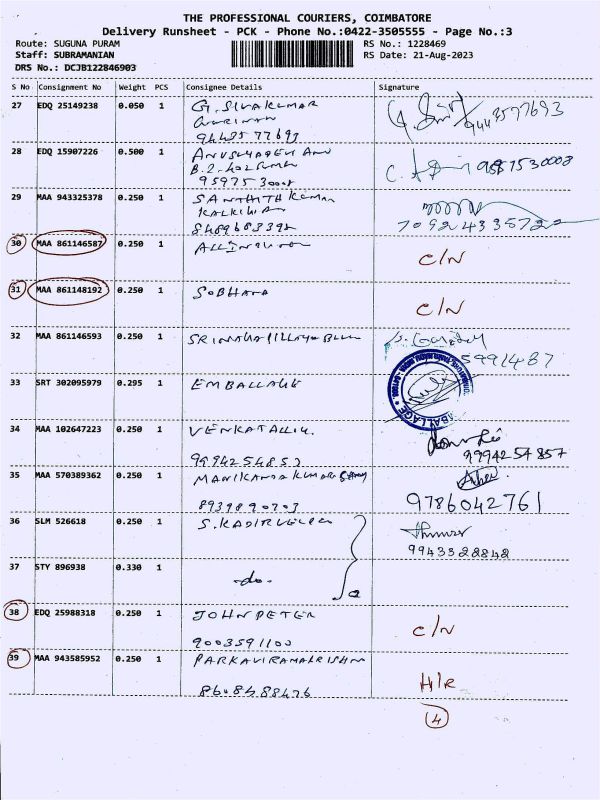 THE PROFESSIONAL COURIERS, COIMBATORE
Delivery Runsheet - PCK - Phone No.:0422-3505555 - Page No.:3
Route: SUGUNA PURAM RS No.: 1228469
Staff: SUBRAMANIAN RS Date: 21-Aug-2023
DRS No.: DCJB122846903
S No Consignment No Weight PCS Consignee Details Signature
27 EDQ 25149238 0.050 1 G. SIVAKUMAR
9443577693
28 EDQ 15907226 0.500 1
C. 9597530008
29 MAA 943325378 0.250 1 SANTHITH KUMAR
30 MAA 861146587 0.250 1 C/N
31 MAA 861148192 0.250 1 SOBHANA C/N
32 MAA 861146593 0.250 1
33 SRT 302095979 0.295 1 EMBALLAGE
34 MAA 102647223 0.250 1
9994254857 9994254857
35 MAA 570389362 0.250 1 MANIKANDA KUMAR
8939890703 9786042761
36 SLM 526618 0.250 1 S. KADIRVELAN
9943322842
37 STY 896938 0.330 1 -do-
38 EDQ 25988318 0.250 1 JOHN PETER C/N
9003591100
39 MAA 943585952 0.250 1 PARKAVIRAMAKRISHN H/R
8608488476
4